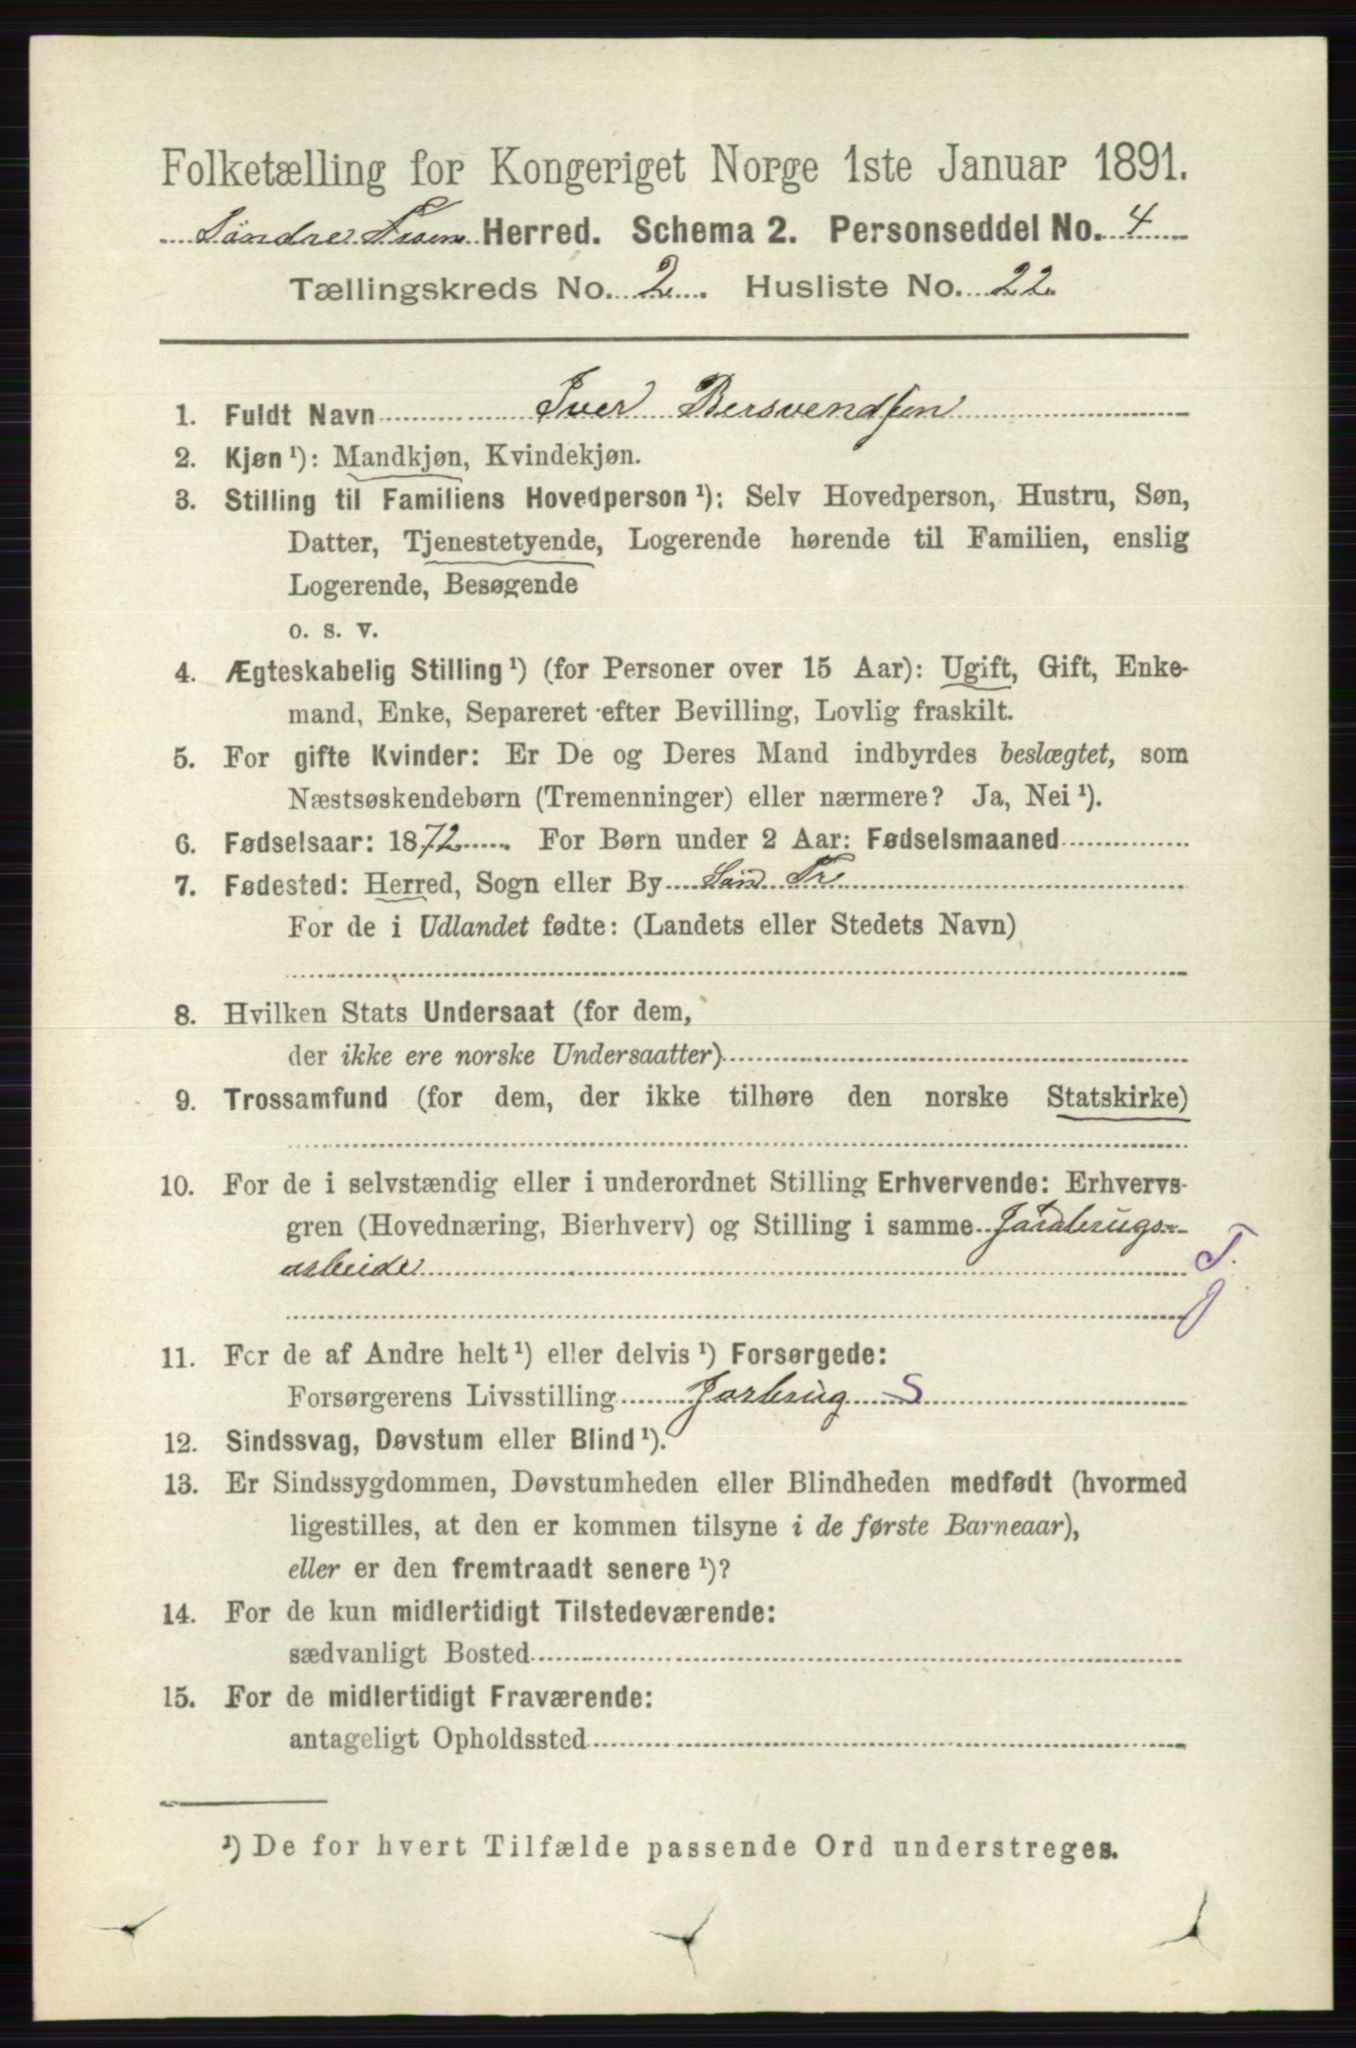 Folketælling for Kongeriget Norge 1ste Januar 1891.
Søndre Fron Herred. Schema 2. Personseddel No. 4
Tællingskreds No. 2. Husliste No. 22
1. Fuldt Navn Iver Bersvendsen
2. Kjøn ¹): Mandkjøn, Kvindekjøn.
3. Stilling til Familiens Hovedperson ¹): Selv Hovedperson, Hustru, Søn,
Datter, Tjenestetyende, Logerende hørende til Familien, enslig
Logerende, Besøgende
o. s. v.
4. Ægteskabelig Stilling ¹) (for Personer over 15 Aar): Ugift, Gift, Enke-
mand, Enke, Separeret efter Bevilling, Lovlig fraskilt.
5. For gifte Kvinder: Er De og Deres Mand indbyrdes beslægtet, som
Næstsøskendebørn (Tremenninger) eller nærmere? Ja, Nei ¹).
6. Fødselsaar: 1872. For Børn under 2 Aar: Fødselsmaaned
7. Fødested: Herred, Sogn eller By Sønd Fr
For de i Udlandet fødte: (Landets eller Stedets Navn)
8. Hvilken Stats Undersaat (for dem,
der ikke ere norske Undersaatter)
9. Trossamfund (for dem, der ikke tilhøre den norske Statskirke)
10. For de i selvstændig eller i underordnet Stilling Erhvervende: Erhvervs-
gren (Hovednæring, Bierhverv) og Stilling i samme Jordbrugs-
arbeide T.
J
11. For de af Andre helt ¹) eller delvis ¹) Forsørgede:
Forsørgerens Livsstilling Jorbrug S
12. Sindssvag, Døvstum eller Blind ¹).
13. Er Sindssygdommen, Døvstumheden eller Blindheden medfødt (hvormed
ligestilles, at den er kommen tilsyne i de første Barneaar),
eller er den fremtraadt senere ¹)?
14. For de kun midlertidigt Tilstedeværende:
sædvanligt Bosted
15. For de midlertidigt Fraværende:
antageligt Opholdssted
¹) De for hvert Tilfælde passende Ord understreges.